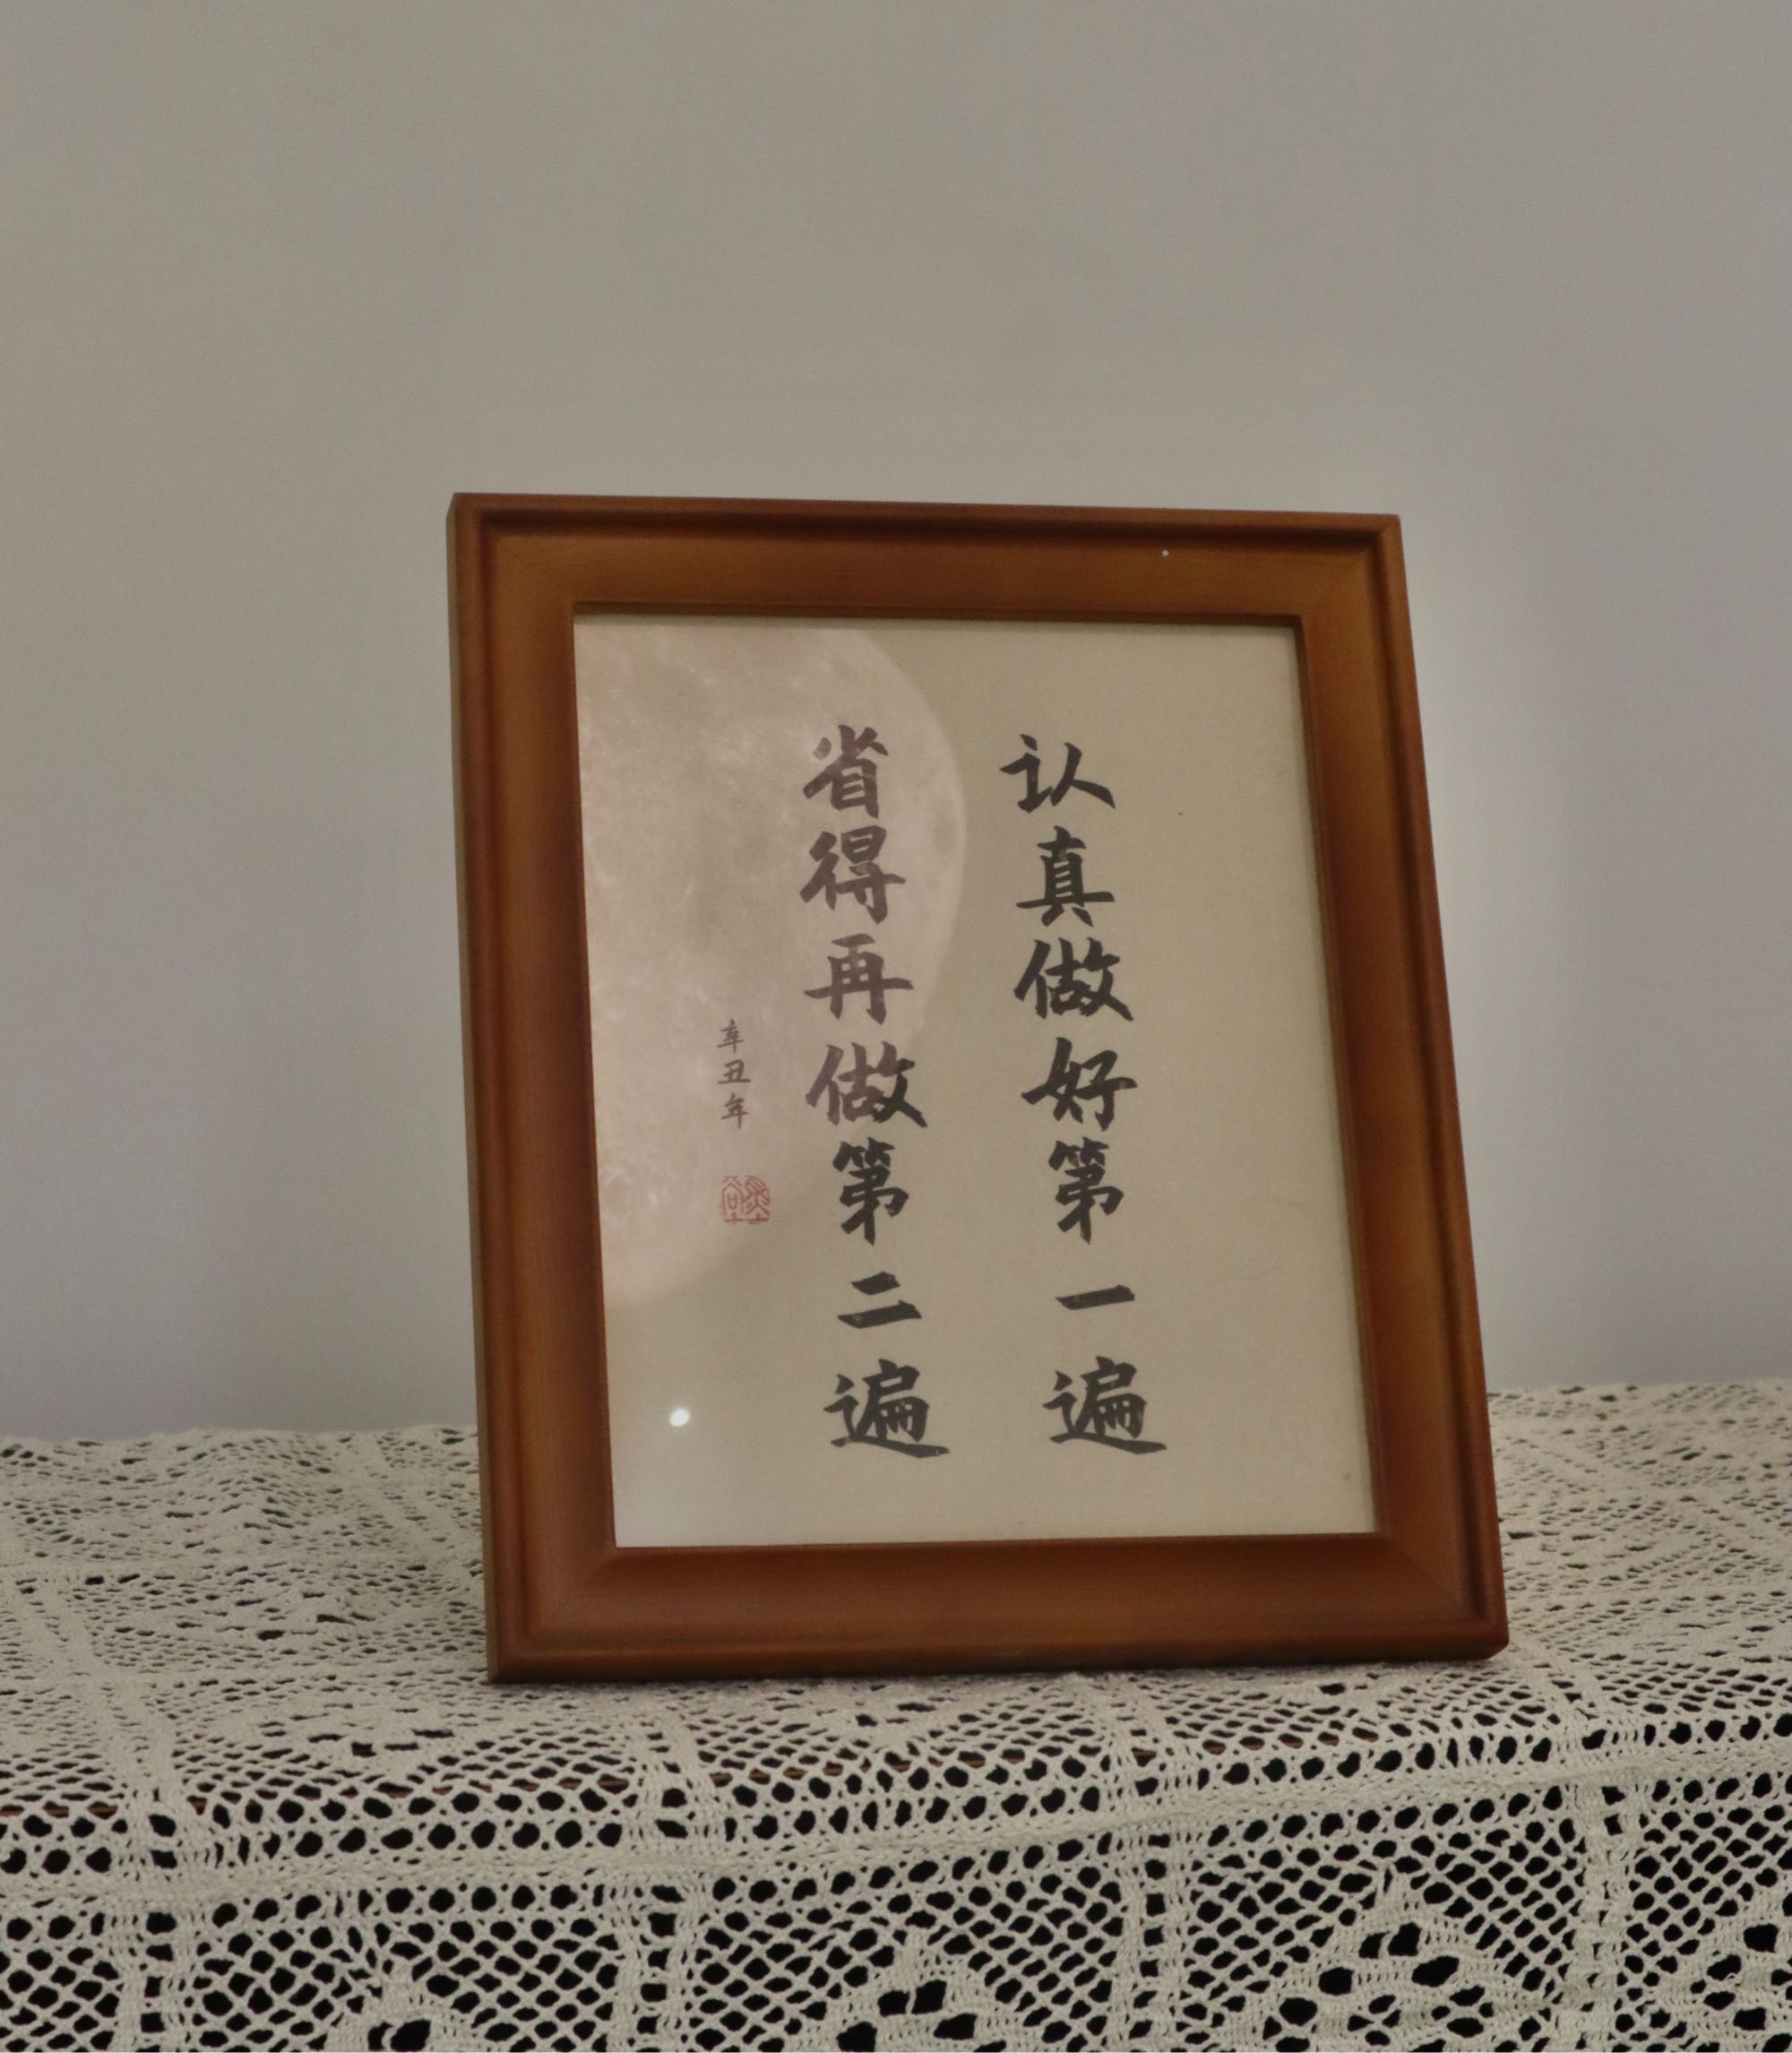 认真做好第一遍
省得再做第二遍
辛丑年